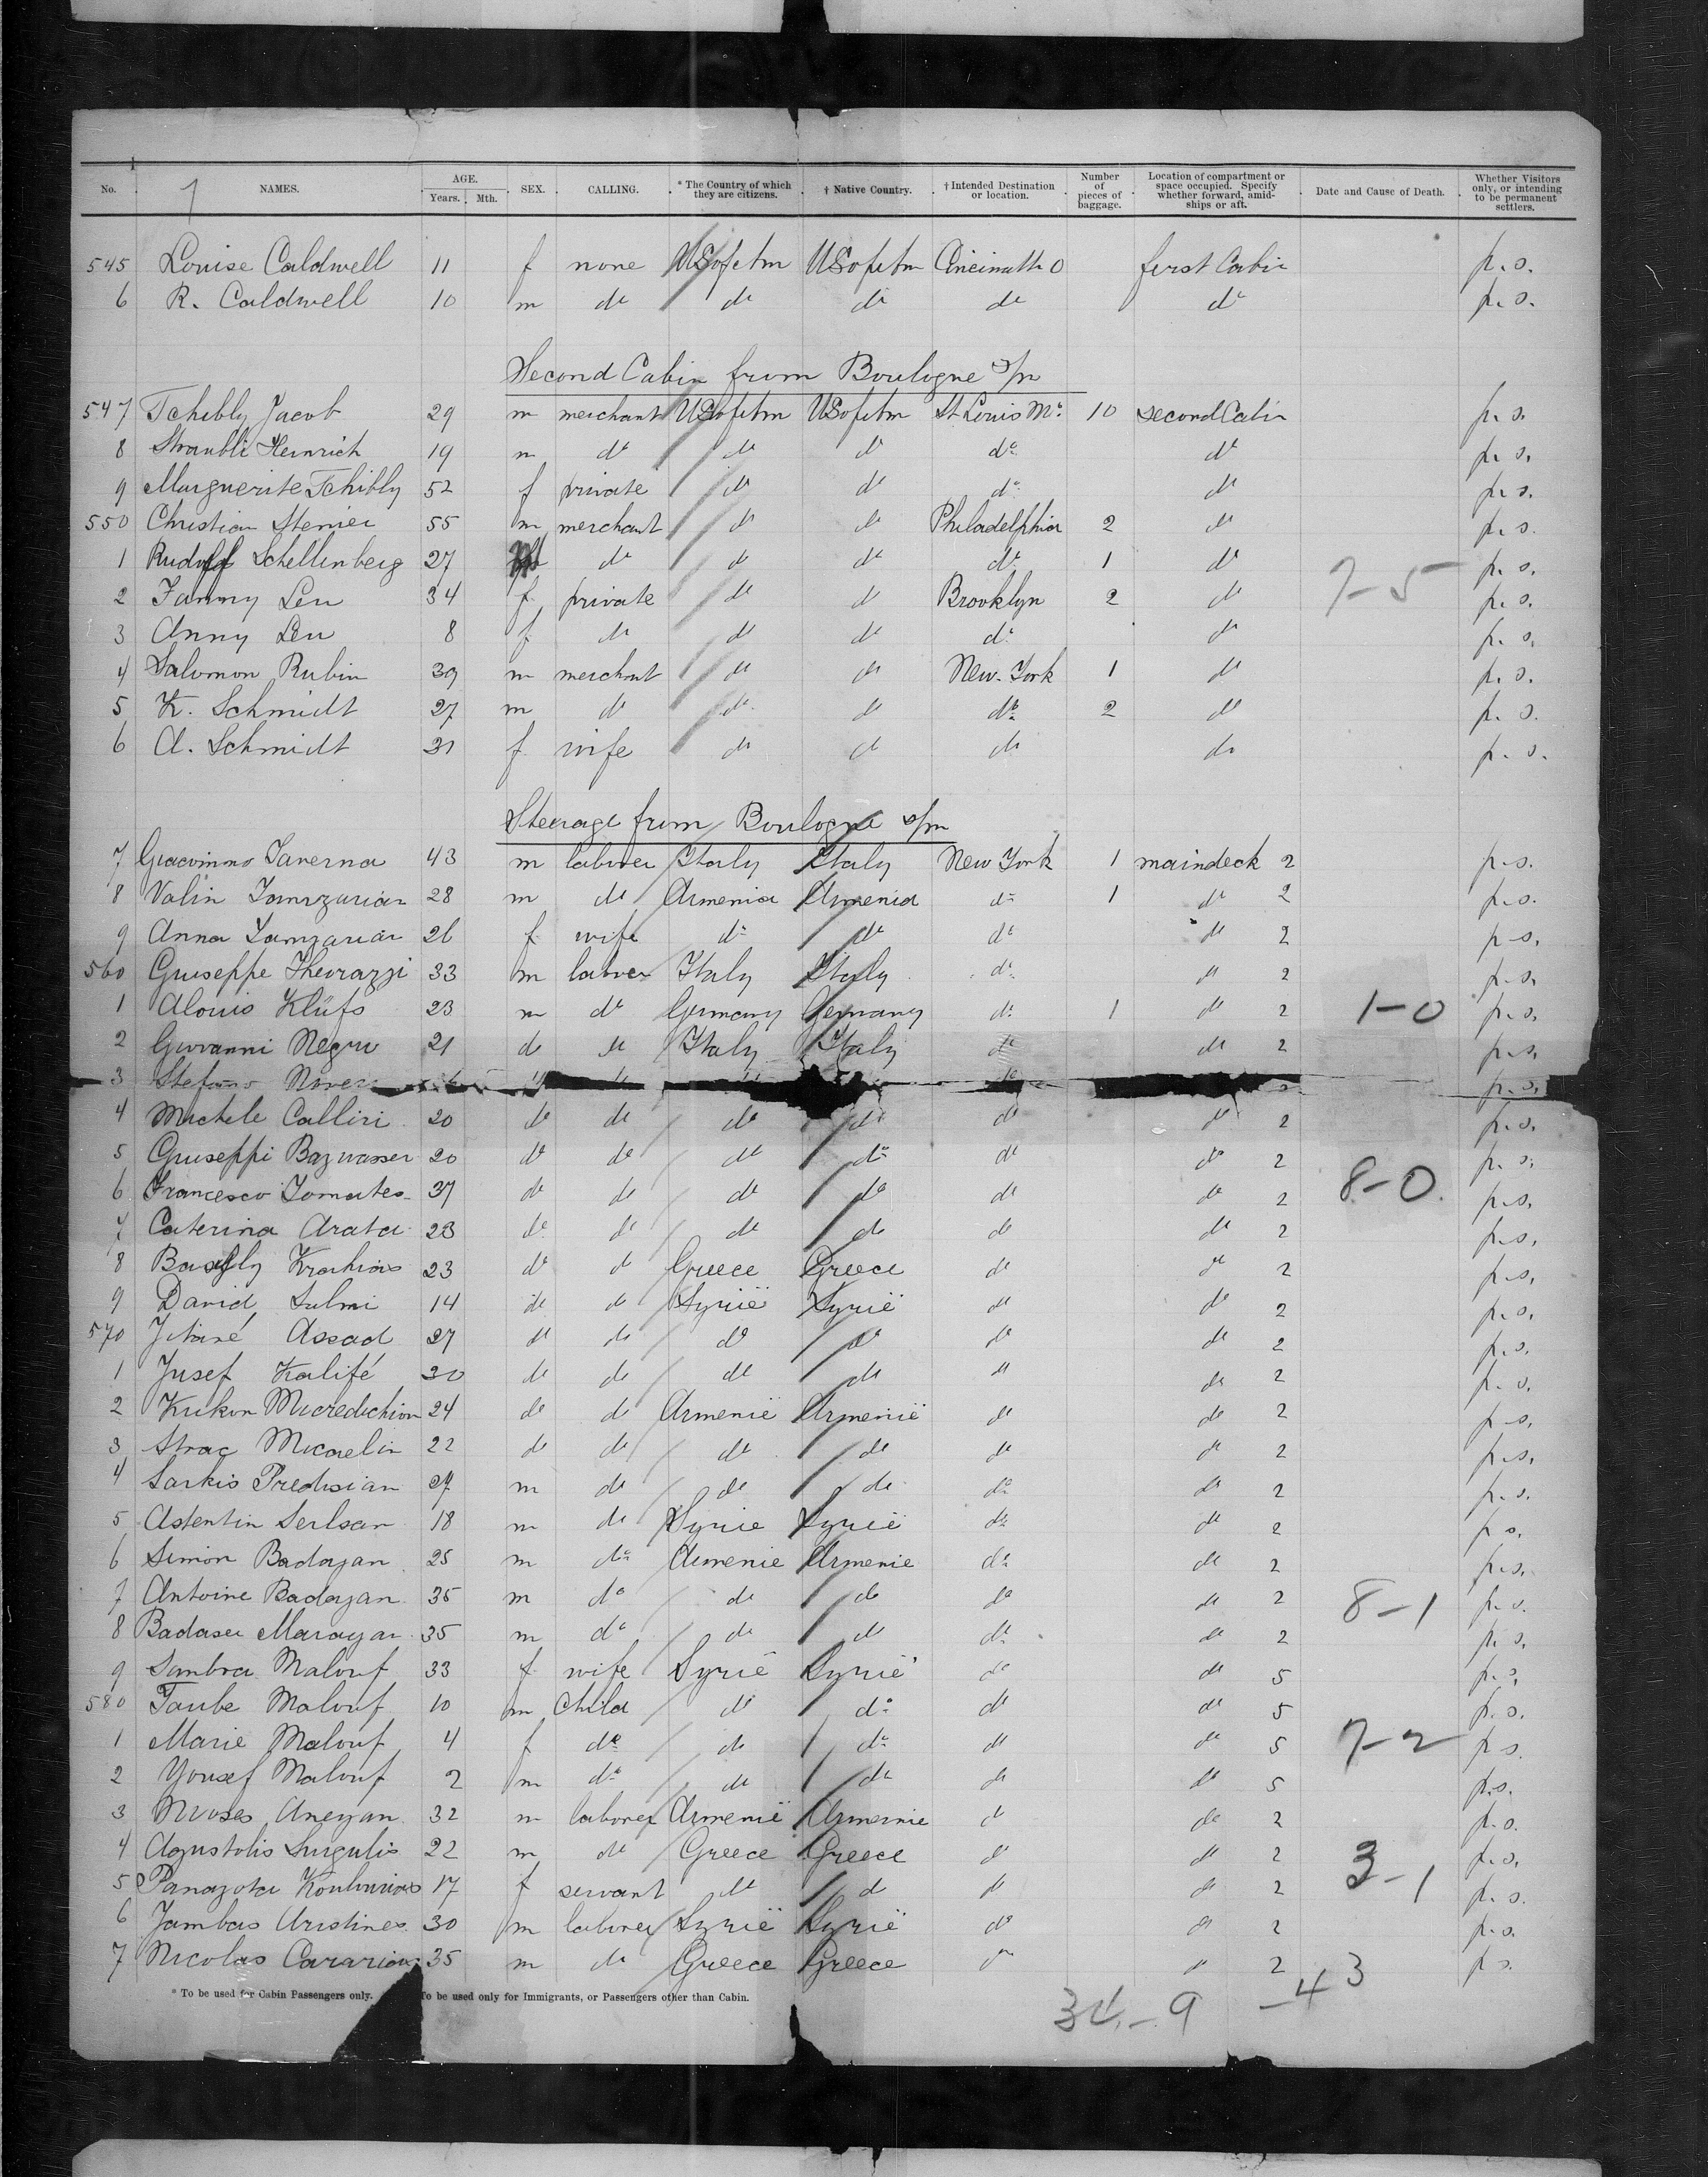 No. NAMES. AGE. Years. Mth. SEX. CALLING. * The Country of which they are citizens. † Native Country. † Intended Destination or location. Number of pieces of baggage. Location of compartment or space occupied. Specify whether forward, amidships or aft. Date and Cause of Death. Whether Visitors only, or intending to be permanent settlers.
545 Louise Caldwell 11 f none USofam USofam Cincinatti O first Cabin p.s.
6 R. Caldwell 10 m do do do do do p.s.
Second Cabin from Boulogne s/m
547 Tchibly Jacob 29 m merchant USofam USofam St. Louis Mo 10 second Cabin p.s.
8 Straubli Heinrich 19 m do do do do do p.s.
9 Marguerite Tchibly 52 f private do do do do p.s.
550 Christian Stenier 55 m merchant do do Philadelphia 2 do p.s.
1 Rudolf Schellenberg 27 do do do do 1 do p.s.
7-5
2 Fanny Leu 34 f private do do Brooklyn 2 do p.s.
3 Anny Leu 8 f do do do do do p.s.
4 Salomon Rubin 39 m merchant do do New-York 1 do p.s.
5 K. Schmidt 27 m do do do do 2 do p.s.
6 A. Schmidt 31 f wife do do do do p.s.
Steerage from Boulogne s/m
7 Giacommo Taverna 43 m laborer Italy Italy New York 1 maindeck 2 p.s.
8 Valin 28 m do Armenia Armenia do 1 do 2 p.s.
9 Anna 26 f wife do do do do 2 p.s.
560 Giuseppe 33 m laborer Italy Italy do do 2 p.s.
1 Alouis Klüfs 23 m do Germany Germany do 1 do 2 1-0 p.s.
2 Giovanni Negro 21 do do Italy Italy do do 2 p.s.
3 Stefano do p.s.
4 Michele Calliri 20 do do do do do do 2 p.s.
5 Giuseppi 20 do do do do do do 2 p.s.
8-0
6 Francesco Tomates 37 do do do do do do 2 p.s.
7 Caterina Arata 23 do do do do do do 2 p.s.
8 Krahias 23 do do Greece Greece do do 2 p.s.
9 David Selmi 14 do do Syrië Syrië do do 2 p.s.
570 Assad 27 do do do do do do 2 p.s.
1 Jusef Kalifé 30 do do do do do do 2 p.s.
2 Kirkon 24 do do Armenië Armenië do do 2 p.s.
3 Micaelin 22 do do do do do do 2 p.s.
4 Sarkis Predisian 27 m do do do do do 2 p.s.
5 Astentin Serlsan 18 m do Syrie Syrië do do 2 p.s.
6 Simon Badoyan 25 m do Armenie Armenie do do 2 p.s.
7 Antoine Badoyan 35 m do do do do do 2 8-1 p.s.
8 Badaser Marayan 35 m do do do do do 2 p.s.
9 Sambra Malouf 33 f wife Syrië Syrië do do 5 p.s.
580 Taube Malouf 10 m child do do do do 5 p.s.
1 Marie Malouf 4 f do do do do do 5 7-2 p.s.
2 Yousef Malouf 2 m do do do do do 5 p.s.
3 Moses Aneyan 32 m laborer Armenië Armenie do do 2 p.s.
4 Agustolis 22 m do Greece Greece do do 2 p.s.
3-1
5 Panazota 17 f servant do do do do 2 p.s.
6 Jambas Aristines 30 m laborer Syrië Syrië do do 2 p.s.
7 Nicolas 35 m do Greece Greece do do 2 p.s.
* To be used for Cabin Passengers only. To be used only for Immigrants, or Passengers other than Cabin.
-9 -43